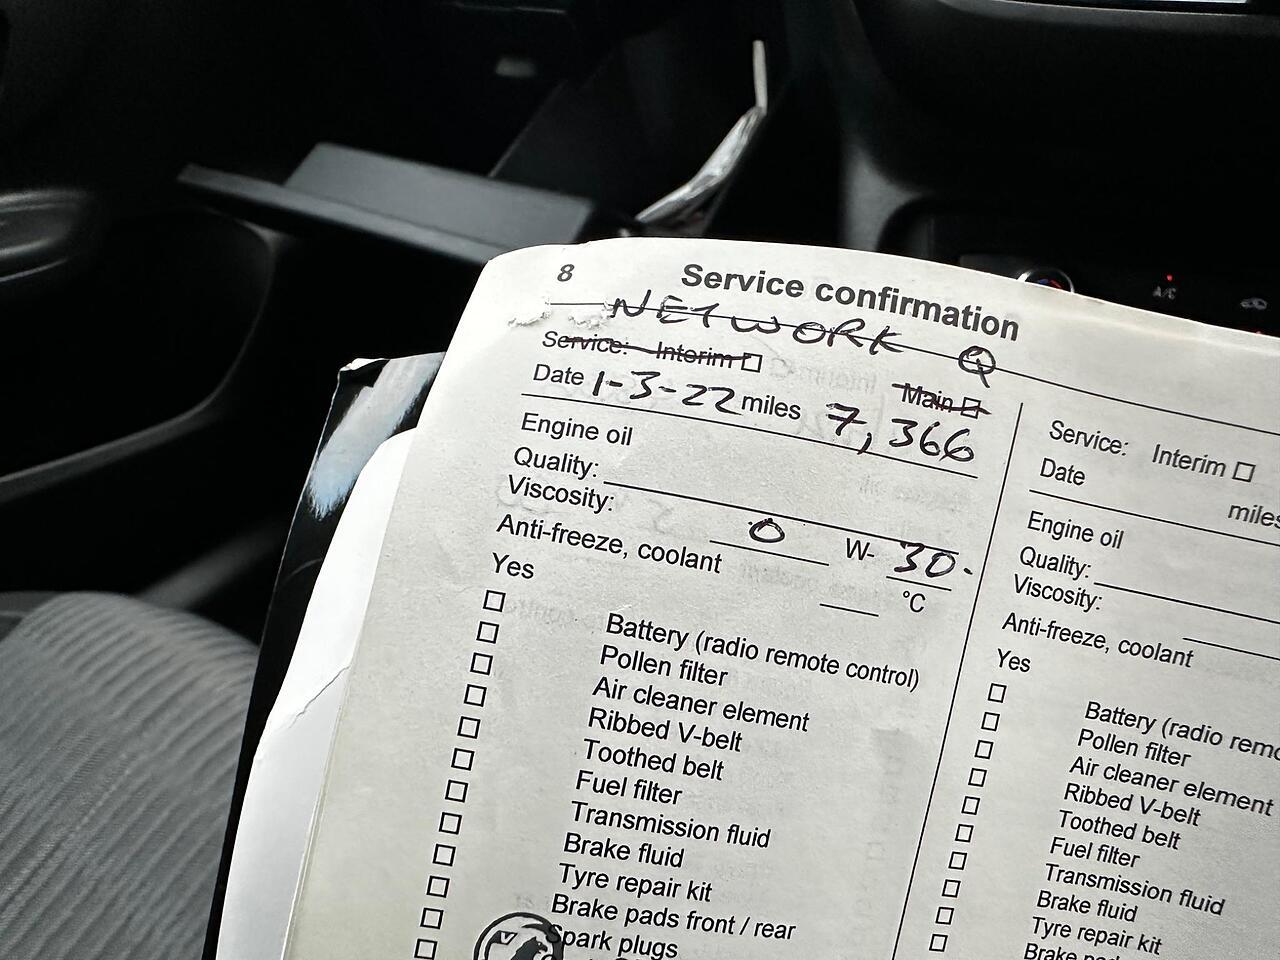 8
Service confirmation
NETWORK Q
Service: Interim
Main
Date 1-3-22 miles 7,366
Engine oil
Quality:
Viscosity: 0 W- 30.
Anti-freeze, coolant °C
Yes
Battery (radio remote control)
Pollen filter
Air cleaner element
Ribbed V-belt
Toothed belt
Fuel filter
Transmission fluid
Brake fluid
Tyre repair kit
Brake pads front / rear
Spark plugs
Service: Interim
Date
miles
Engine oil
Quality:
Viscosity:
Anti-freeze, coolant
Yes
Battery (radio remo
Pollen filter
Air cleaner element
Ribbed V-belt
Toothed belt
Fuel filter
Transmission fluid
Brake fluid
Tyre repair kit
Brake pad
A/C